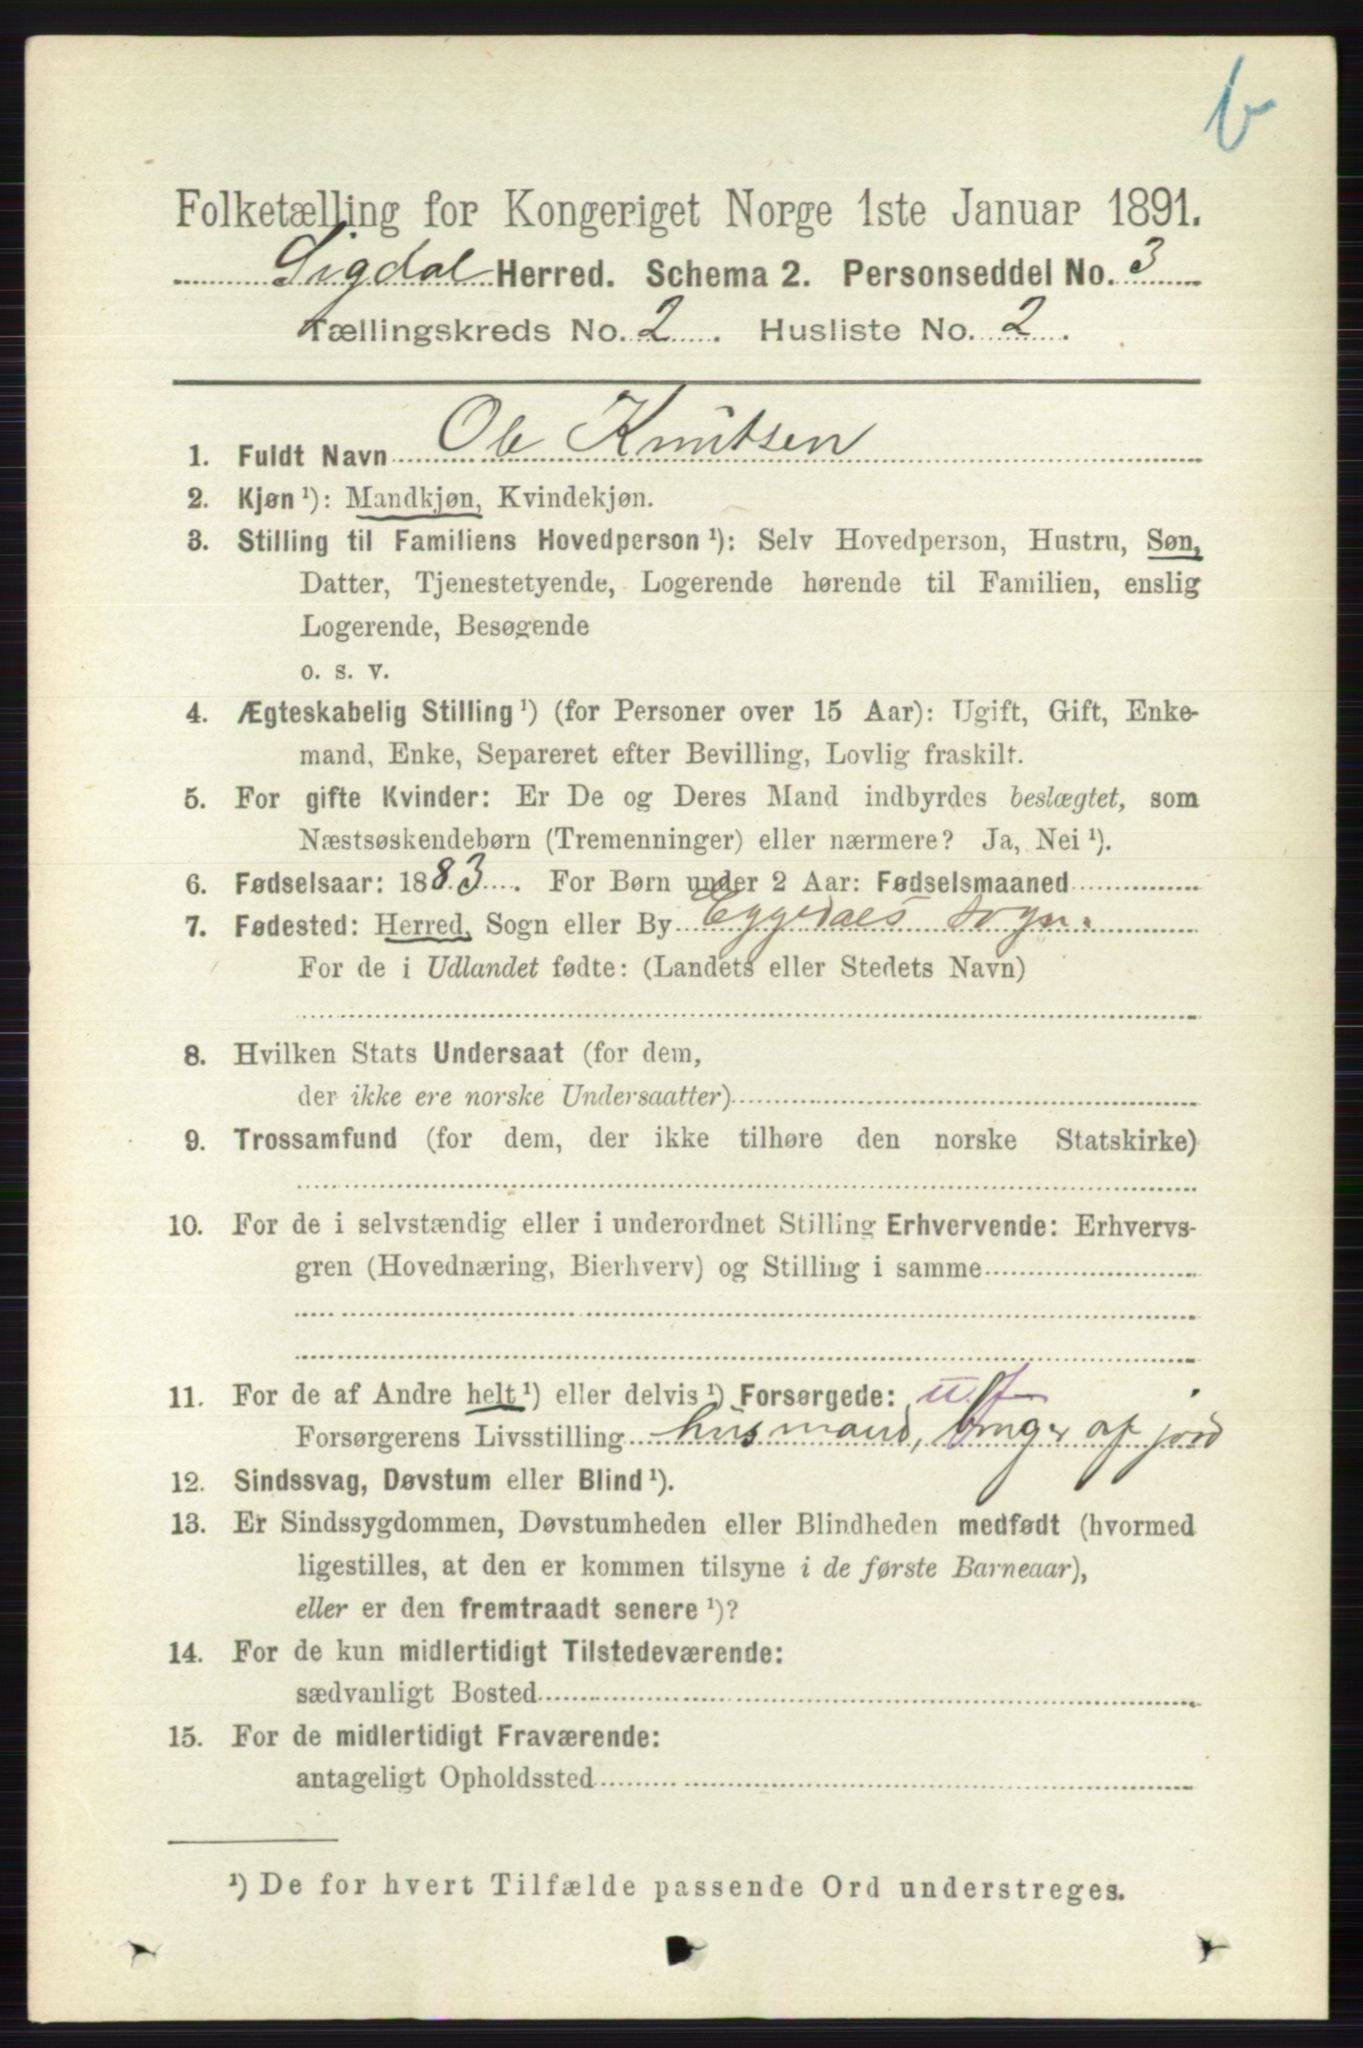 b
Folketælling for Kongeriget Norge 1ste Januar 1891.
Sigdal Herred. Schema 2. Personseddel No. 3
Tællingskreds No. 2. Husliste No. 2.
1. Fuldt Navn Ole Knutsen
2. Kjøn ¹): Mandkjøn, Kvindekjøn.
3. Stilling til Familiens Hovedperson ¹): Selv Hovedperson, Hustru, Søn,
Datter, Tjenestetyende, Logerende hørende til Familien, enslig
Logerende, Besøgende
o. s. v.
4. Ægteskabelig Stilling ¹) (for Personer over 15 Aar): Ugift, Gift, Enke-
mand, Enke, Separeret efter Bevilling, Lovlig fraskilt.
5. For gifte Kvinder: Er De og Deres Mand indbyrdes beslægtet, som
Næstsøskendebørn (Tremenninger) eller nærmere? Ja, Nei ¹).
6. Fødselsaar: 1883. For Børn under 2 Aar: Fødselsmaaned
7. Fødested: Herred, Sogn eller By Eggedals sogn.
For de i Udlandet fødte: (Landets eller Stedets Navn)
8. Hvilken Stats Undersaat (for dem,
der ikke ere norske Undersaatter)
9. Trossamfund (for dem, der ikke tilhøre den norske Statskirke)
10. For de i selvstændig eller i underordnet Stilling Erhvervende: Erhvervs-
gren (Hovednæring, Bierhverv) og Stilling i samme
11. For de af Andre helt ¹) eller delvis ¹) Forsørgede:
Forsørgerens Livsstilling husmand, bruger af jord
12. Sindssvag, Døvstum eller Blind ¹).
13. Er Sindssygdommen, Døvstumheden eller Blindheden medfødt (hvormed
ligestilles, at den er kommen tilsyne i de første Barneaar),
eller er den fremtraadt senere ¹)?
14. For de kun midlertidigt Tilstedeværende:
sædvanligt Bosted
15. For de midlertidigt Fraværende:
antageligt Opholdssted
¹) De for hvert Tilfælde passende Ord understreges.